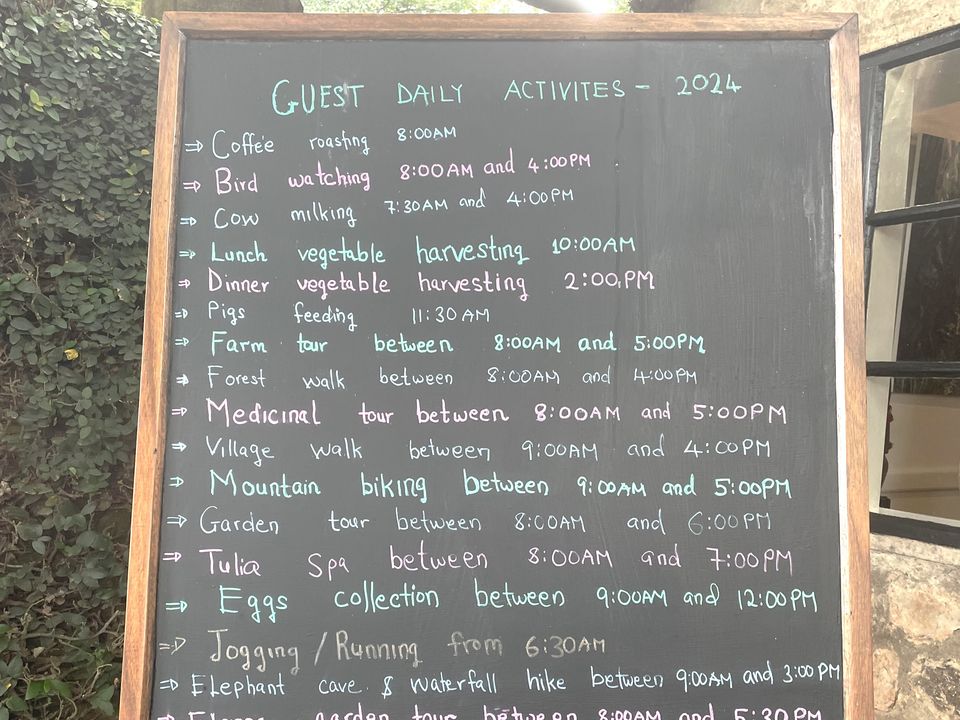 GUEST DAILY ACTIVITES - 2024
⇒ Coffee roasting 8:00AM
⇒ Bird watching 8:00AM and 4:00PM
⇒ Cow milking 7:30AM and 4:00PM
⇒ Lunch vegetable harvesting 10:00AM
⇒ Dinner vegetable harvesting 2:00PM
⇒ Pigs feeding 11:30AM
⇒ Farm tour between 8:00AM and 5:00PM
⇒ Forest walk between 8:00AM and 4:00PM
⇒ Medicinal tour between 8:00AM and 5:00PM
⇒ Village walk between 9:00AM and 4:00PM
⇒ Mountain biking between 9:00AM and 5:00PM
⇒ Garden tour between 8:00AM and 6:00PM
⇒ Tulia Spa between 8:00AM and 7:00PM
⇒ Eggs collection between 9:00AM and 12:00PM
⇒ Jogging / Running from 6:30AM
⇒ Elephant cave & waterfall hike between 9:00AM and 3:00PM
⇒ garden tour between 8:00AM and 5:30PM